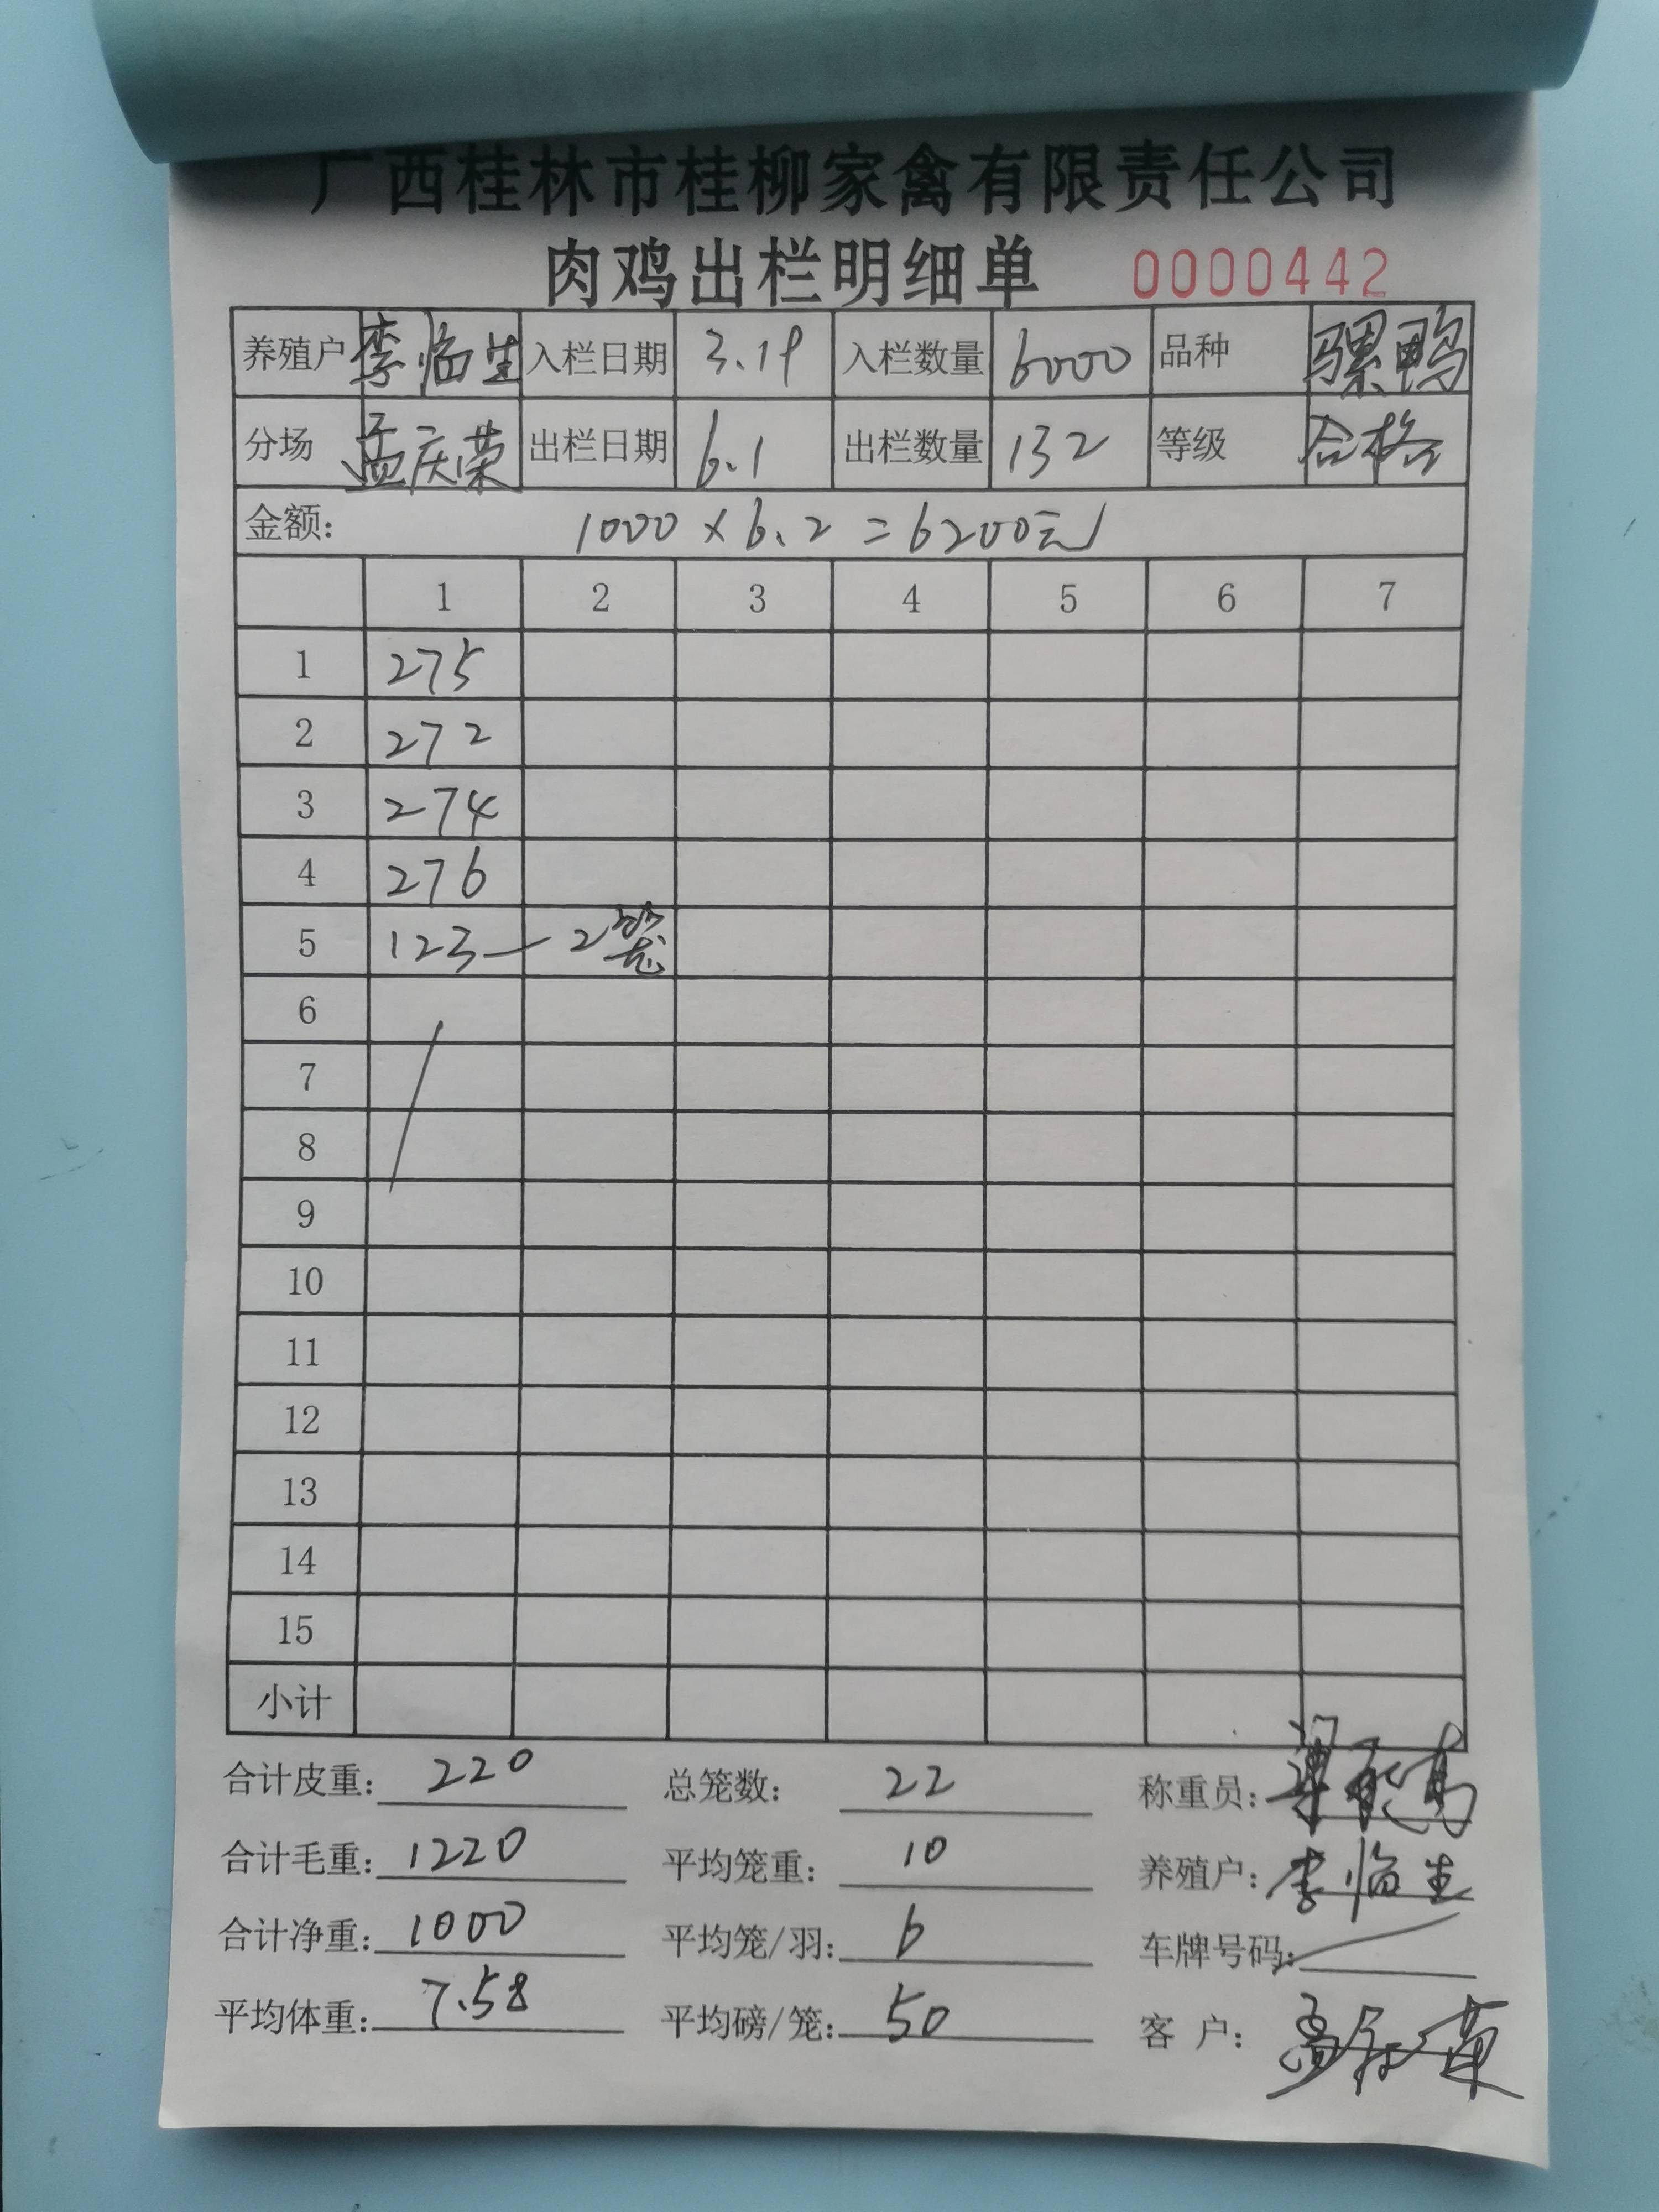 广西桂林市桂柳家禽有限责任公司
肉鸡出栏明细单 0000442
养殖户 李临生 入栏日期 3.19 入栏数量 6000 品种 骡鸭
分场 孟庆荣 出栏日期 6.1 出栏数量 132 等级 合格
金额: 1000 × 6.2 = 6200元
1 2 3 4 5 6 7
1 275
2 272
3 274
4 276
5 123 — 2笼
6
7
8
9
10
11
12
13
14
15
小计
合计皮重: 220 总笼数: 22 称重员:
合计毛重: 1220 平均笼重: 10 养殖户: 李临生
合计净重: 1000 平均笼/羽: 6 车牌号码:
平均体重: 7.58 平均磅/笼: 50 客 户: